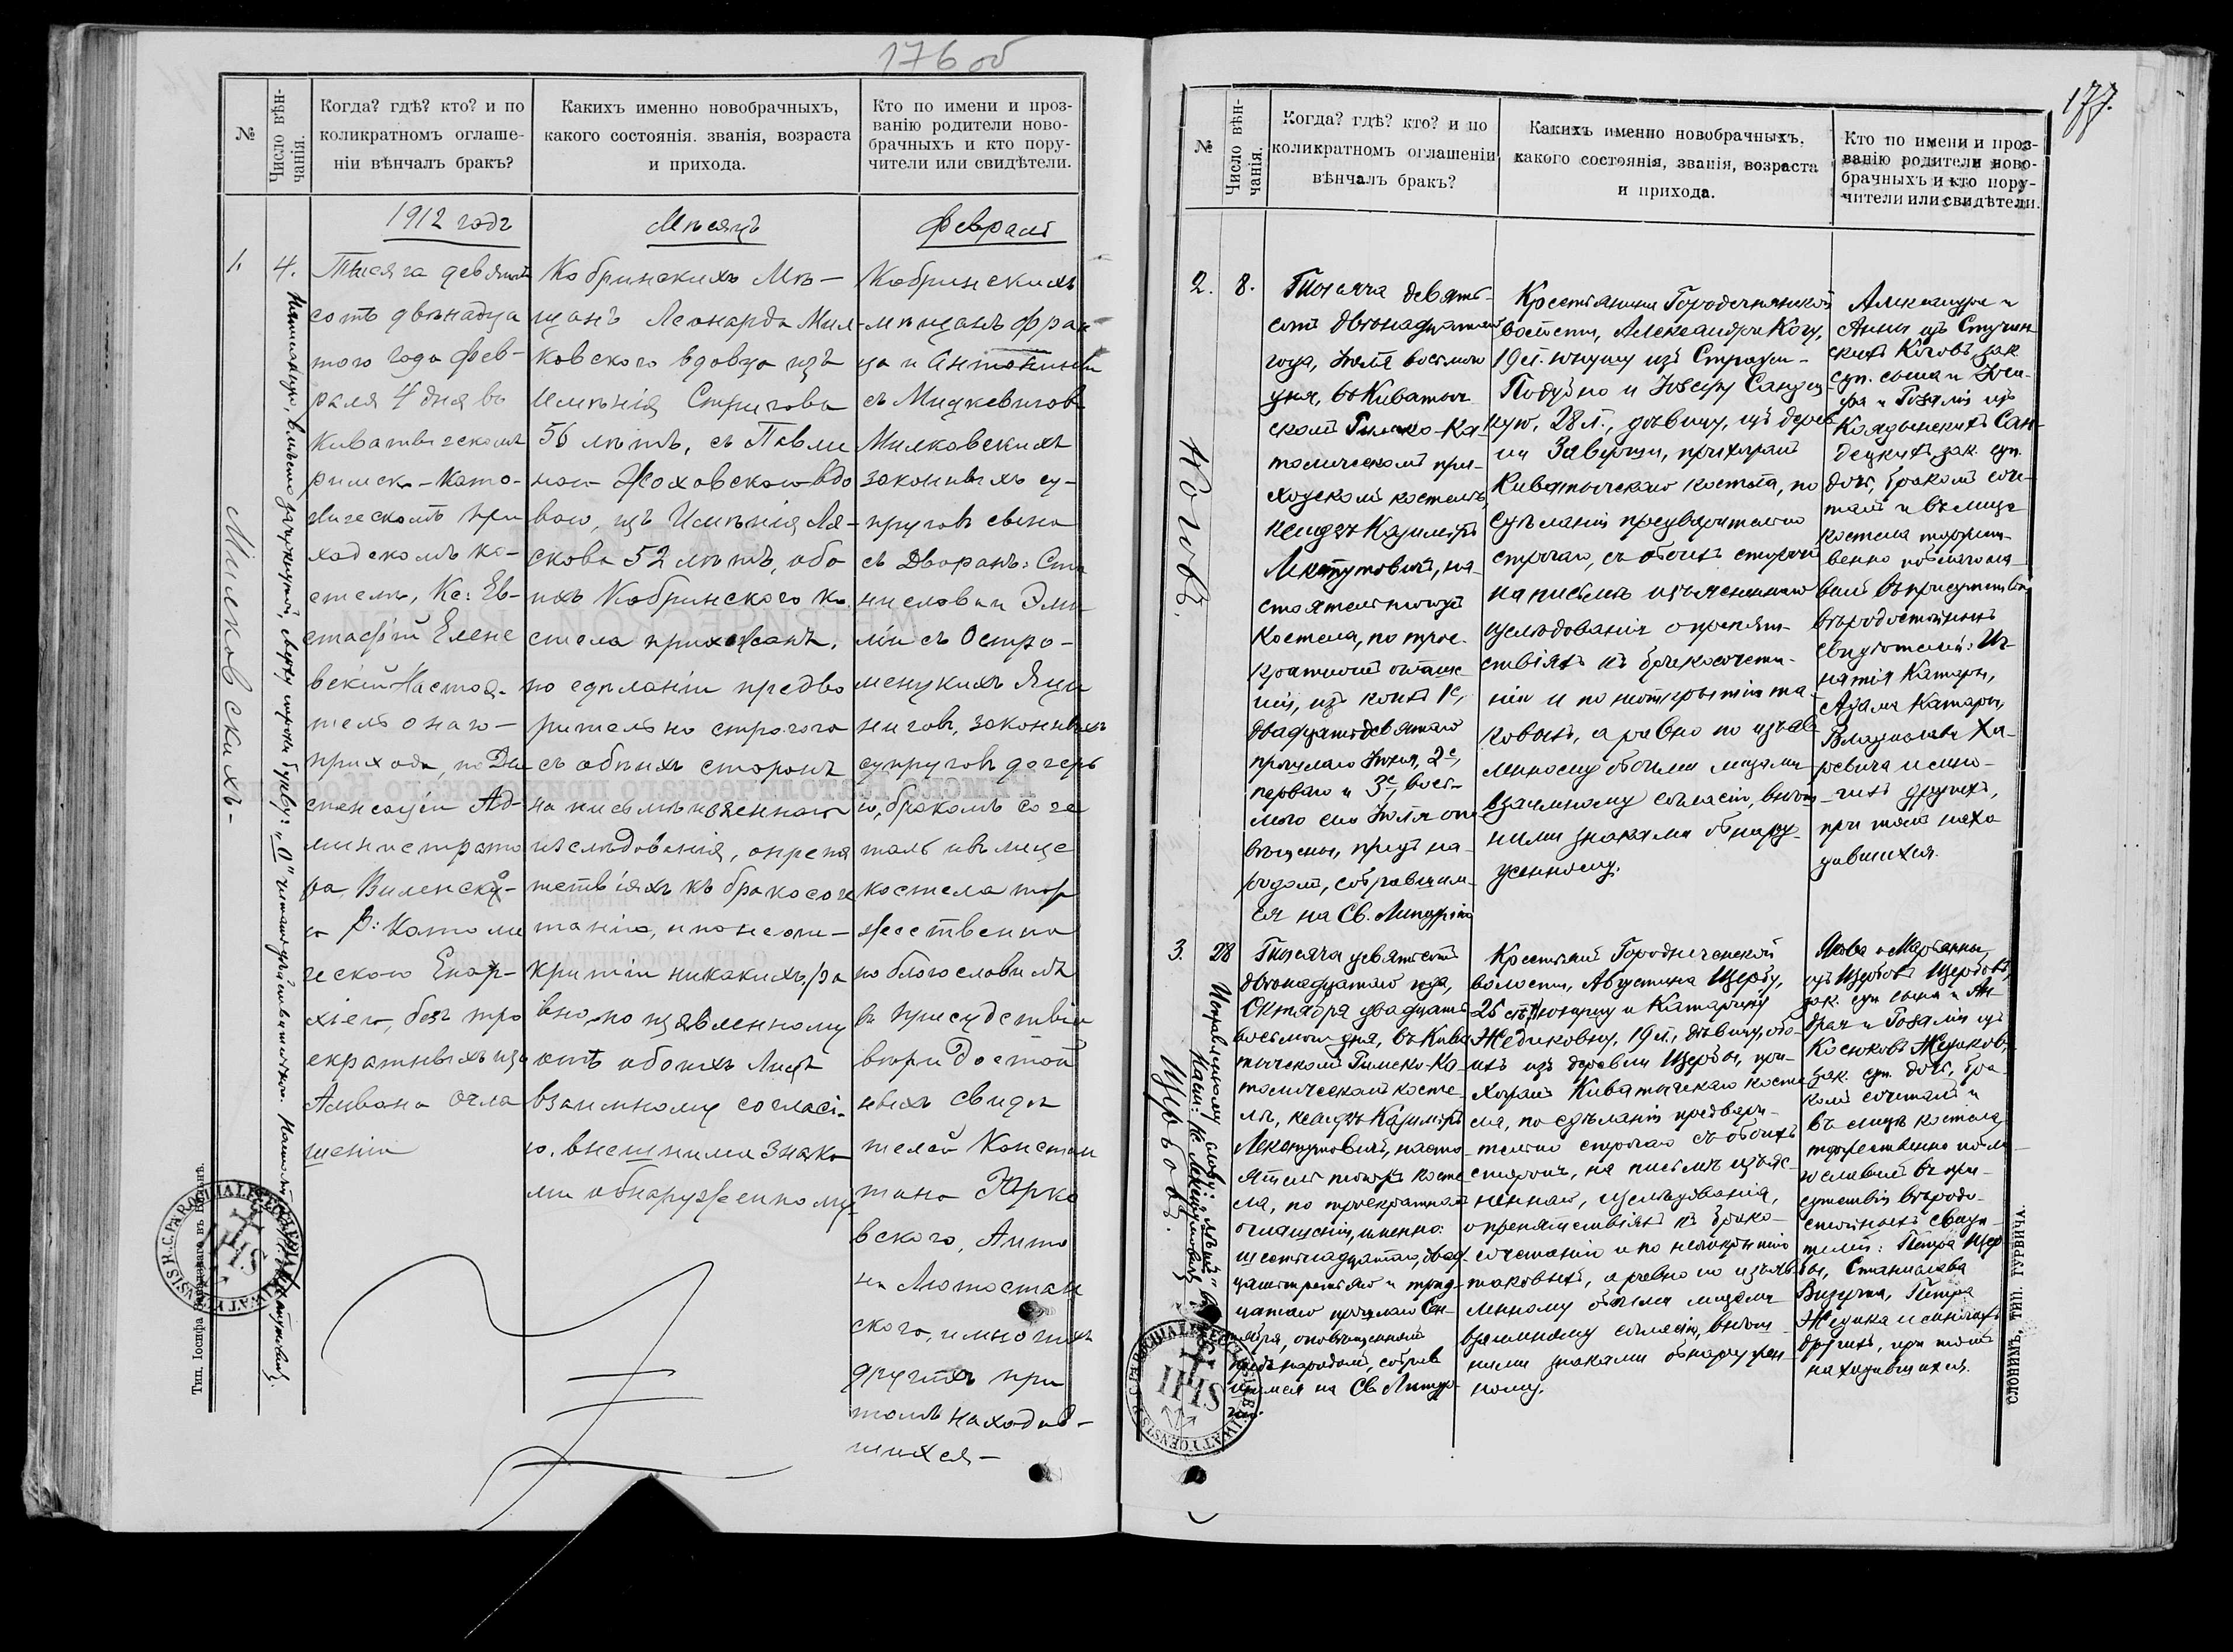 176 об
№
Число вѣн-
чанія.
Когда? гдѣ? кто? и по
коликратномъ оглаше-
ніи вѣнчалъ бракъ?
Какихъ именно новобрачныхъ,
какого состоянія. званія, возраста
и прихода.
Кто по имени и проз-
ванію родители ново-
брачныхъ и кто пору-
чители или свидѣтели.
1912 годъ
Мѣсяцъ
Февраль
1.
4.
Милковскихъ-
Тысяча девять
сотъ двѣнадца
того года Фев-
раля 4 дня въ
Киватическомъ
римск-Като-
лическомъ при
ходскомъ ко-
стелѣ, Кс: Ев-
стафій Елене
вскій Настоя-
тель онаго-
прихода, по Ди
спенсаціи Ад-
министрато
ра Виленско-
го Р: Католи
ческого Епар-
хіего, безъ тро
екратныхъ изъ
Амвона огла
шеніи
Кобринскихъ Мѣ-
щанъ Леонарда Мил-
ковского вдовца изъ
Имѣнія Стригова
56 лѣтъ, съ Павли
ною Жоховскою вдо
вою, изъ Имѣнія Ля-
скова 52 лѣтъ, обо
ихъ Кобринского ко
стела прихожанъ,
по сдѣланіи предва
рительно строгого
съ обѣихъ сторонъ
на письмѣ изъясненного
изслѣдованія, о препя
тствіяхъ къ бракосоче
танію, и по неот-
крытіи никакихъ, ра
вно, по изъявленному
отъ обоихъ Лицъ
взаимному согласі-
ю, внешними знака
ми обнаруженному
Кобринскихъ
мѣщанъ Фран
ца и Антонины
съ Мицкевичовъ
Милковскихъ
законныхъ су-
пруговъ сына
съ Дворянъ: Ста
нислова и Эми
ліи съ Остро-
менцкихъ Яци
ничовъ, законныхъ
супруговъ дочерь
ю, бракомъ соче
талъ и въ лице
костела тор
жественно
поблогословилъ
въ присудствіи
вѣри Достой
ныхъ Свидѣ
телей Констан
тана Юрко
вского, Анто
на Лютостан
ского, и многихъ
другихъ при
томъ находив-
шихся-
Тип. Іосифа Завадзкаго въ Вильнѣ.
177.
№
Число вѣн-
чанія.
Когда? гдѣ? кто? и по
коликратномъ оглашеніи
вѣнчалъ бракъ?
Какихъ именно новобрачныхъ,
какого состоянія, званія, возраста
и прихода.
Кто по имени и проз-
ванію родители ново-
брачныхъ и кто пору-
чители или свидѣтели.
2.
8.
Коговъ.
Тысяча девять-
сотъ двѣнадцатаго
года, Іюля восьмого
дня, въ Киватыч
скомъ Римско-Ка-
толическомъ при-
ходскомъ костелѣ,
ксендзъ Казиміръ
Мктутовичъ, на-
стоятель того
Костела, по трое-
кратномъ оглаше
ніи, изъ коихъ 1е,
двадцать девятаго
прошлаго Іюня, 2е,
перваго и 3е, вось-
мого сего Іюля опо
вѣщены, предъ на-
родомъ, собравшим
ся на Св. Литургію
Крестьянина Городечнянской
волости, Александра Когу,
19 л. юношу изъ
и Іозефу Сандец
кую, 28 л., дѣвицу, изъ дерев
ни прихожанъ
Киватычскаго костела, по
сдѣланіи предварительно
строгаго, съ обоихъ сторонъ
на письмѣ изъясненнаго
изслѣдованія о препят-
ствіяхъ къ бракосочета-
нію и по неоткрытіи та-
ковыхъ, а равно по изъяв
ленному обоими лицами
взаимному согласію, внѣш
ними знаками обнару-
женному.
Александра и
Анны изъ
Коговъ, зак.
суп. сына и Іози-
фа и Розаліи изъ
Сан-
децкихъ, зак. суп.
дочь, бракомъ соче-
талъ и въ лице
костела торжест-
венно поблагосло-
вилъ въ присутствіи
вѣродостойныхъ
свидѣтелей: Иг-
натія Катары,
Адама Катары,
Владислава Ха-
ревича и мно-
гихъ другихъ,
при томъ нахо
дившихся.
3.
28
Щербовъ.
Тысяча девятьсотъ
двѣнадцатаго года,
Октября двадцать
восьмого дня, въ Кива
тычскомъ Римско-Ка-
толическомъ косте-
лѣ, ксендзъ Казиміръ
Мктутовичъ, насто-
ятель того косте
ла, по троекратномъ
оглашеніи, именно:
шестнадцатаго, двад-
цать третьяго и трид-
цатаго прошлаго Сен-
тября, оповѣщенномъ
предъ народомъ, собрав
шимся на Св. Литур-
гію.
Крестьянъ Городечнской
волости, Августина Щербу,
25 юношу и Катарину
Жедиковну, 19 л., дѣвицу, обо-
ихъ изъ деревни Щербы, при-
хожанъ Киватычскаго косте
ла, по сдѣланіи предвари-
тельно строгаго съ обоихъ
сторонъ, на письмѣ изъяс-
неннаго, изслѣдованія,
о препятствіяхъ къ брако-
сочетанію и по неоткрытію
таковыхъ, а равно по изъяв-
ленному обоими лицами
взаимному согласію, внѣш-
ними знаками обнаружен-
ному.
Якова и Марьянны,
изъ Щербовъ Щербовъ,
зак. суп. сына и Ан-
дрея и Розаліи изъ
Косюковъ Жедиковъ,
зак. суп. дочь, бра-
комъ сочеталъ и
въ лице костела
торжественно побла-
гословилъ въ при-
сутствіи вѣродо-
стойныхъ свидѣ-
телей: Петра Щер-
бы, Станислава
Петра
Жедика и многихъ
другихъ, при томъ
находившихся.
СЛОНИМЪ, ТИП. ГУРВИЧА.